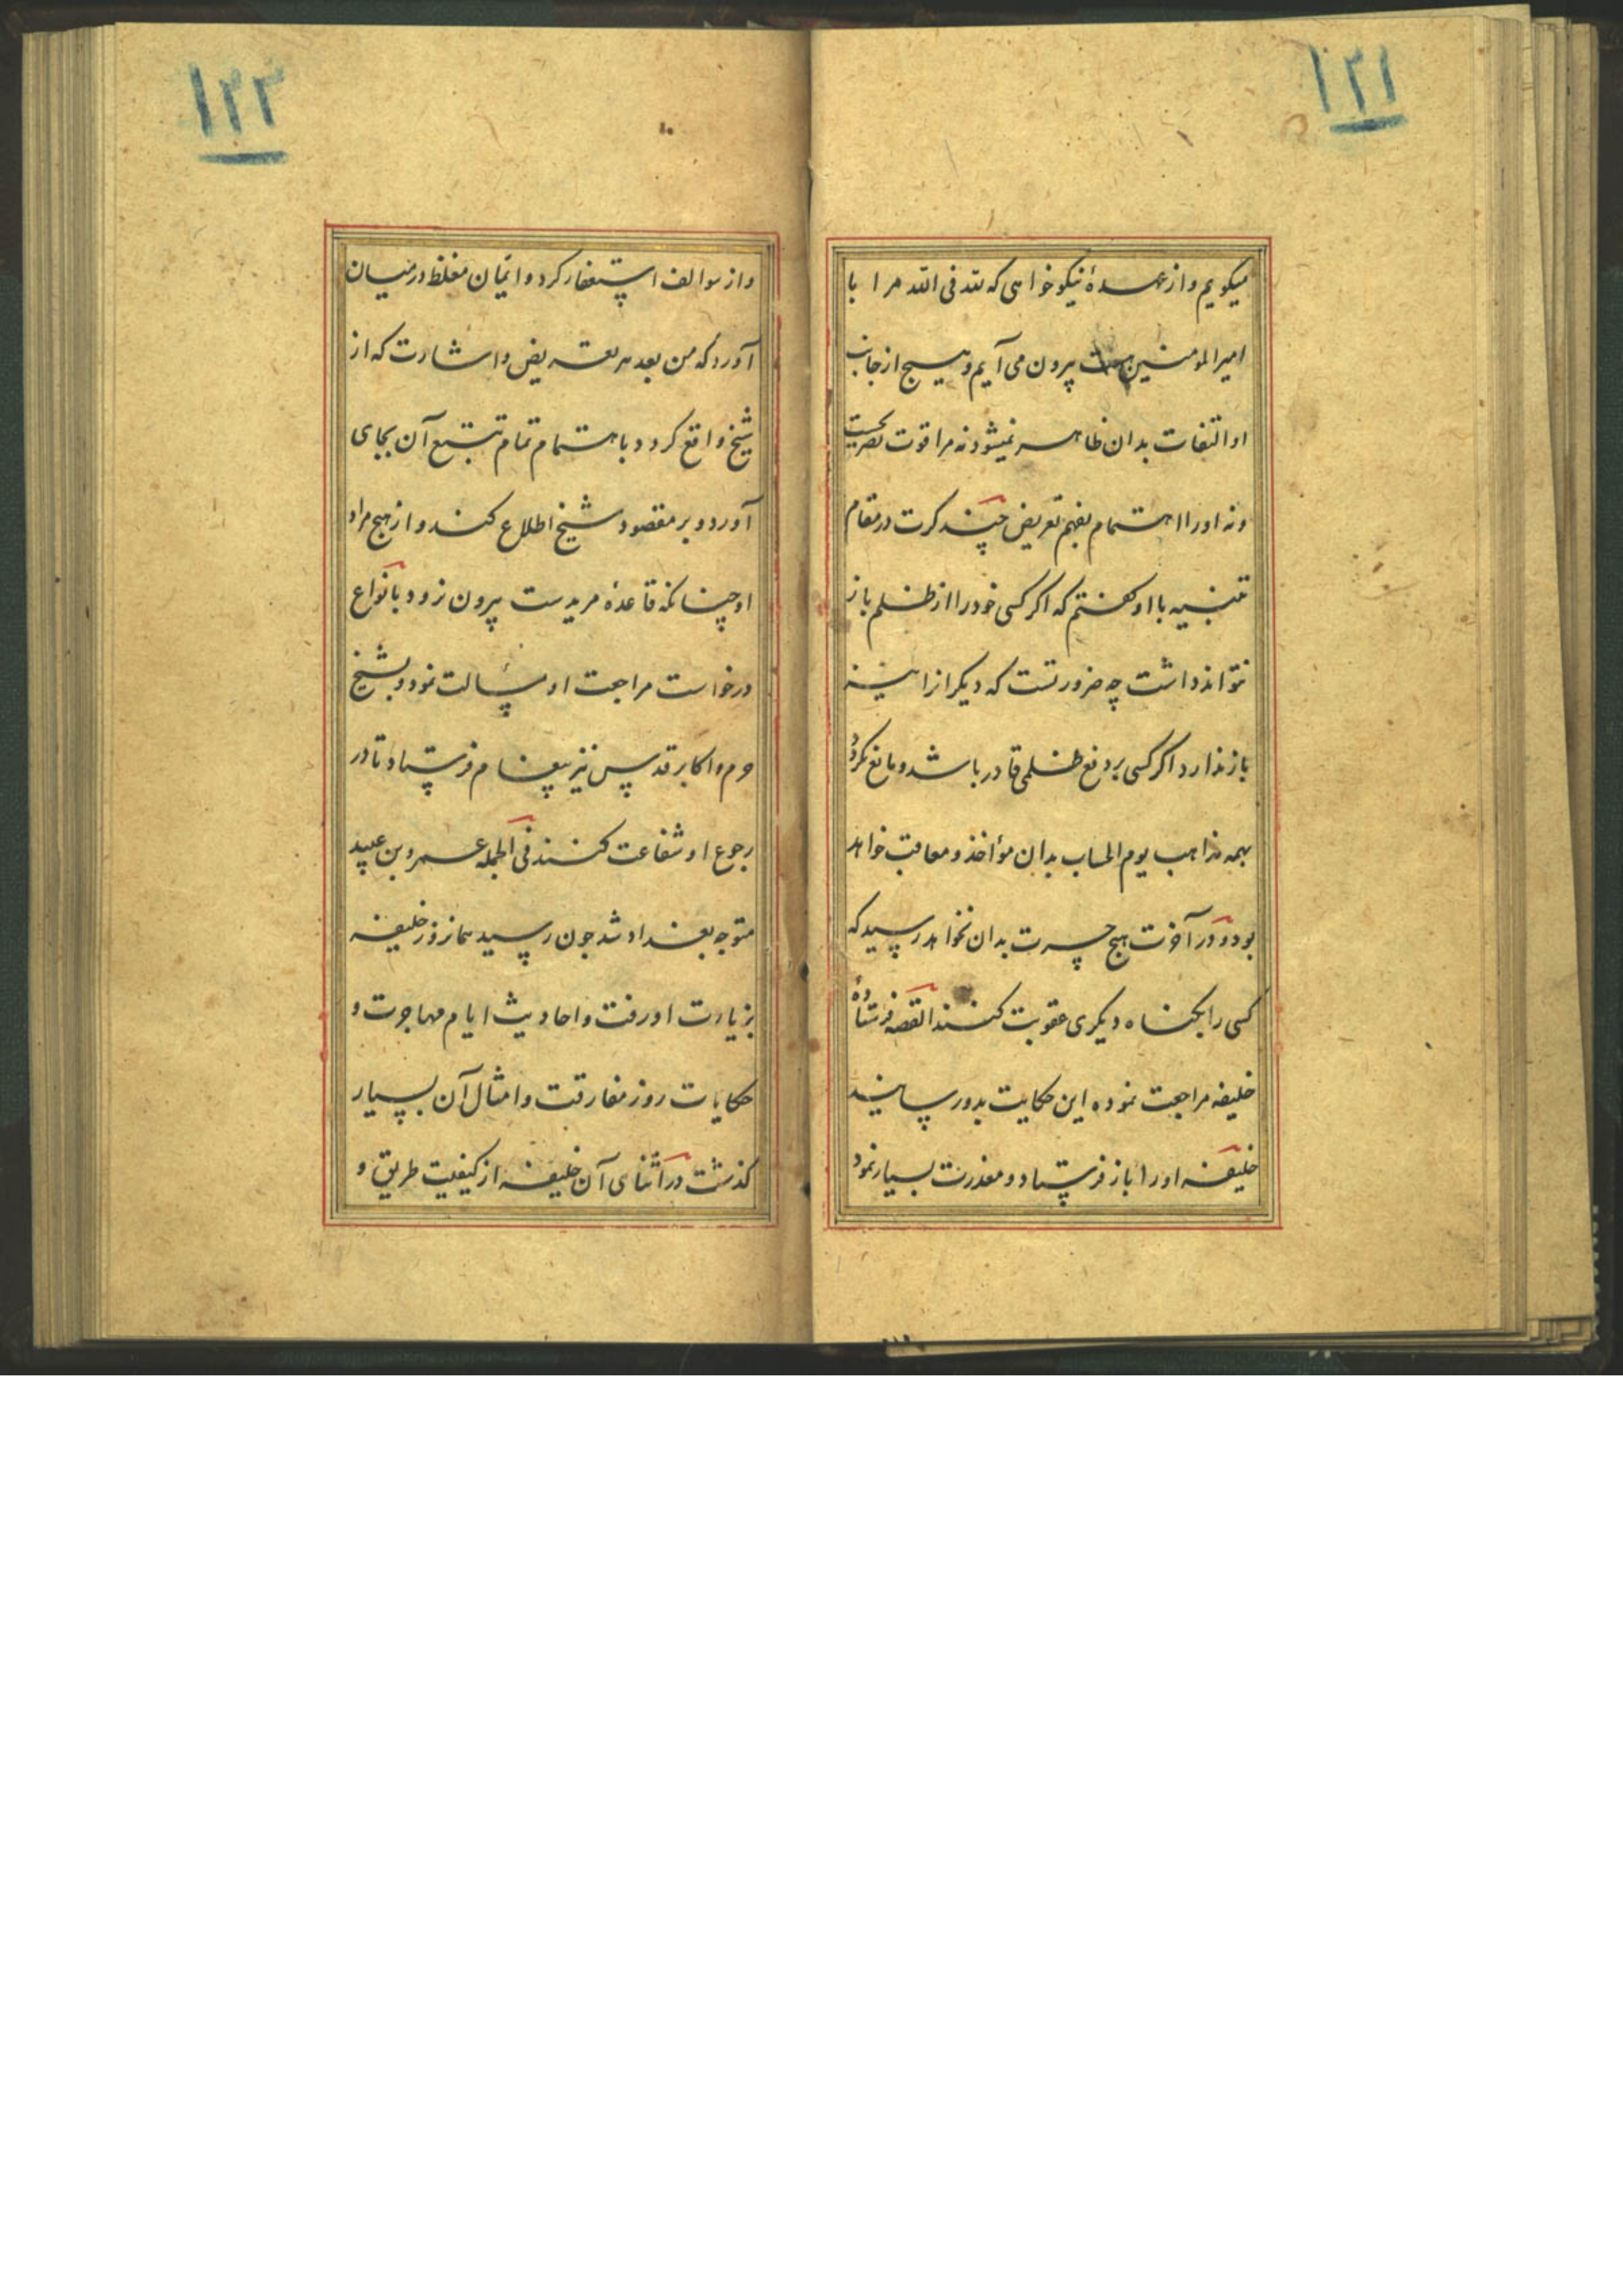 ۱۲۱
میکویم و از عهدهٔ نیکو خواهی که لله فی الله مرا با
امیرالمومنین هست پیرون می آیم و هیچ از جانب
او التفات بدان ظاهر نمیشود نه مرا قوت تصریحست
و نه او را اهتمام بفهم تعریض چند کرت در مقام
تنبیه با او کفتم که اکر کسی خود را از ظلم باز
نتواند داشت چه ضرورتست که دیکرانرا نیز
باز ندارد اکر کسی بر دفع ظلمی قادر باشد و مانع نکردد
بهمه مذاهب یوم الحساب بدان مؤاخذ و معاقب خواهد
بود و در آخرت هیچ حسرت بدان نخواهد رسید که
کسی را بکناه دیکری عقوبت کنند القصه فرستادهٔ
خلیفه مراجعت نموده این حکایت بدو رسانید
خلیفه او را باز فرستاد و معذرت بسیار نمود
۱۲۲
و از سوالف استغفار کرد و ایمان مغلظ در میان
آورد که من بعد هر تعریض و اشارت که از
شیخ واقع کردد باهتمام تمام تتبع آن بجای
آورد و بر مقصود شیخ اطلاع کند و از نهج مراد
او چنانکه قاعدهٔ مریدست پیرون نرود بانواع
درخواست مراجعت او مسألت نمود و بشیخ
حرم و اکابر قدس نیز پیغام فرستاد تا در
رجوع او شفاعت کنند فی الجمله عمرو بن عبید
متوجه بغداد شد جون رسید همانروز خلیفه
بزیارت او رفت و احادیث ایام مهاجرت و
حکایات روز مفارقت و امثال آن بسیار
کذشت در اثنای آن خلیفه از کیفیت طریق و